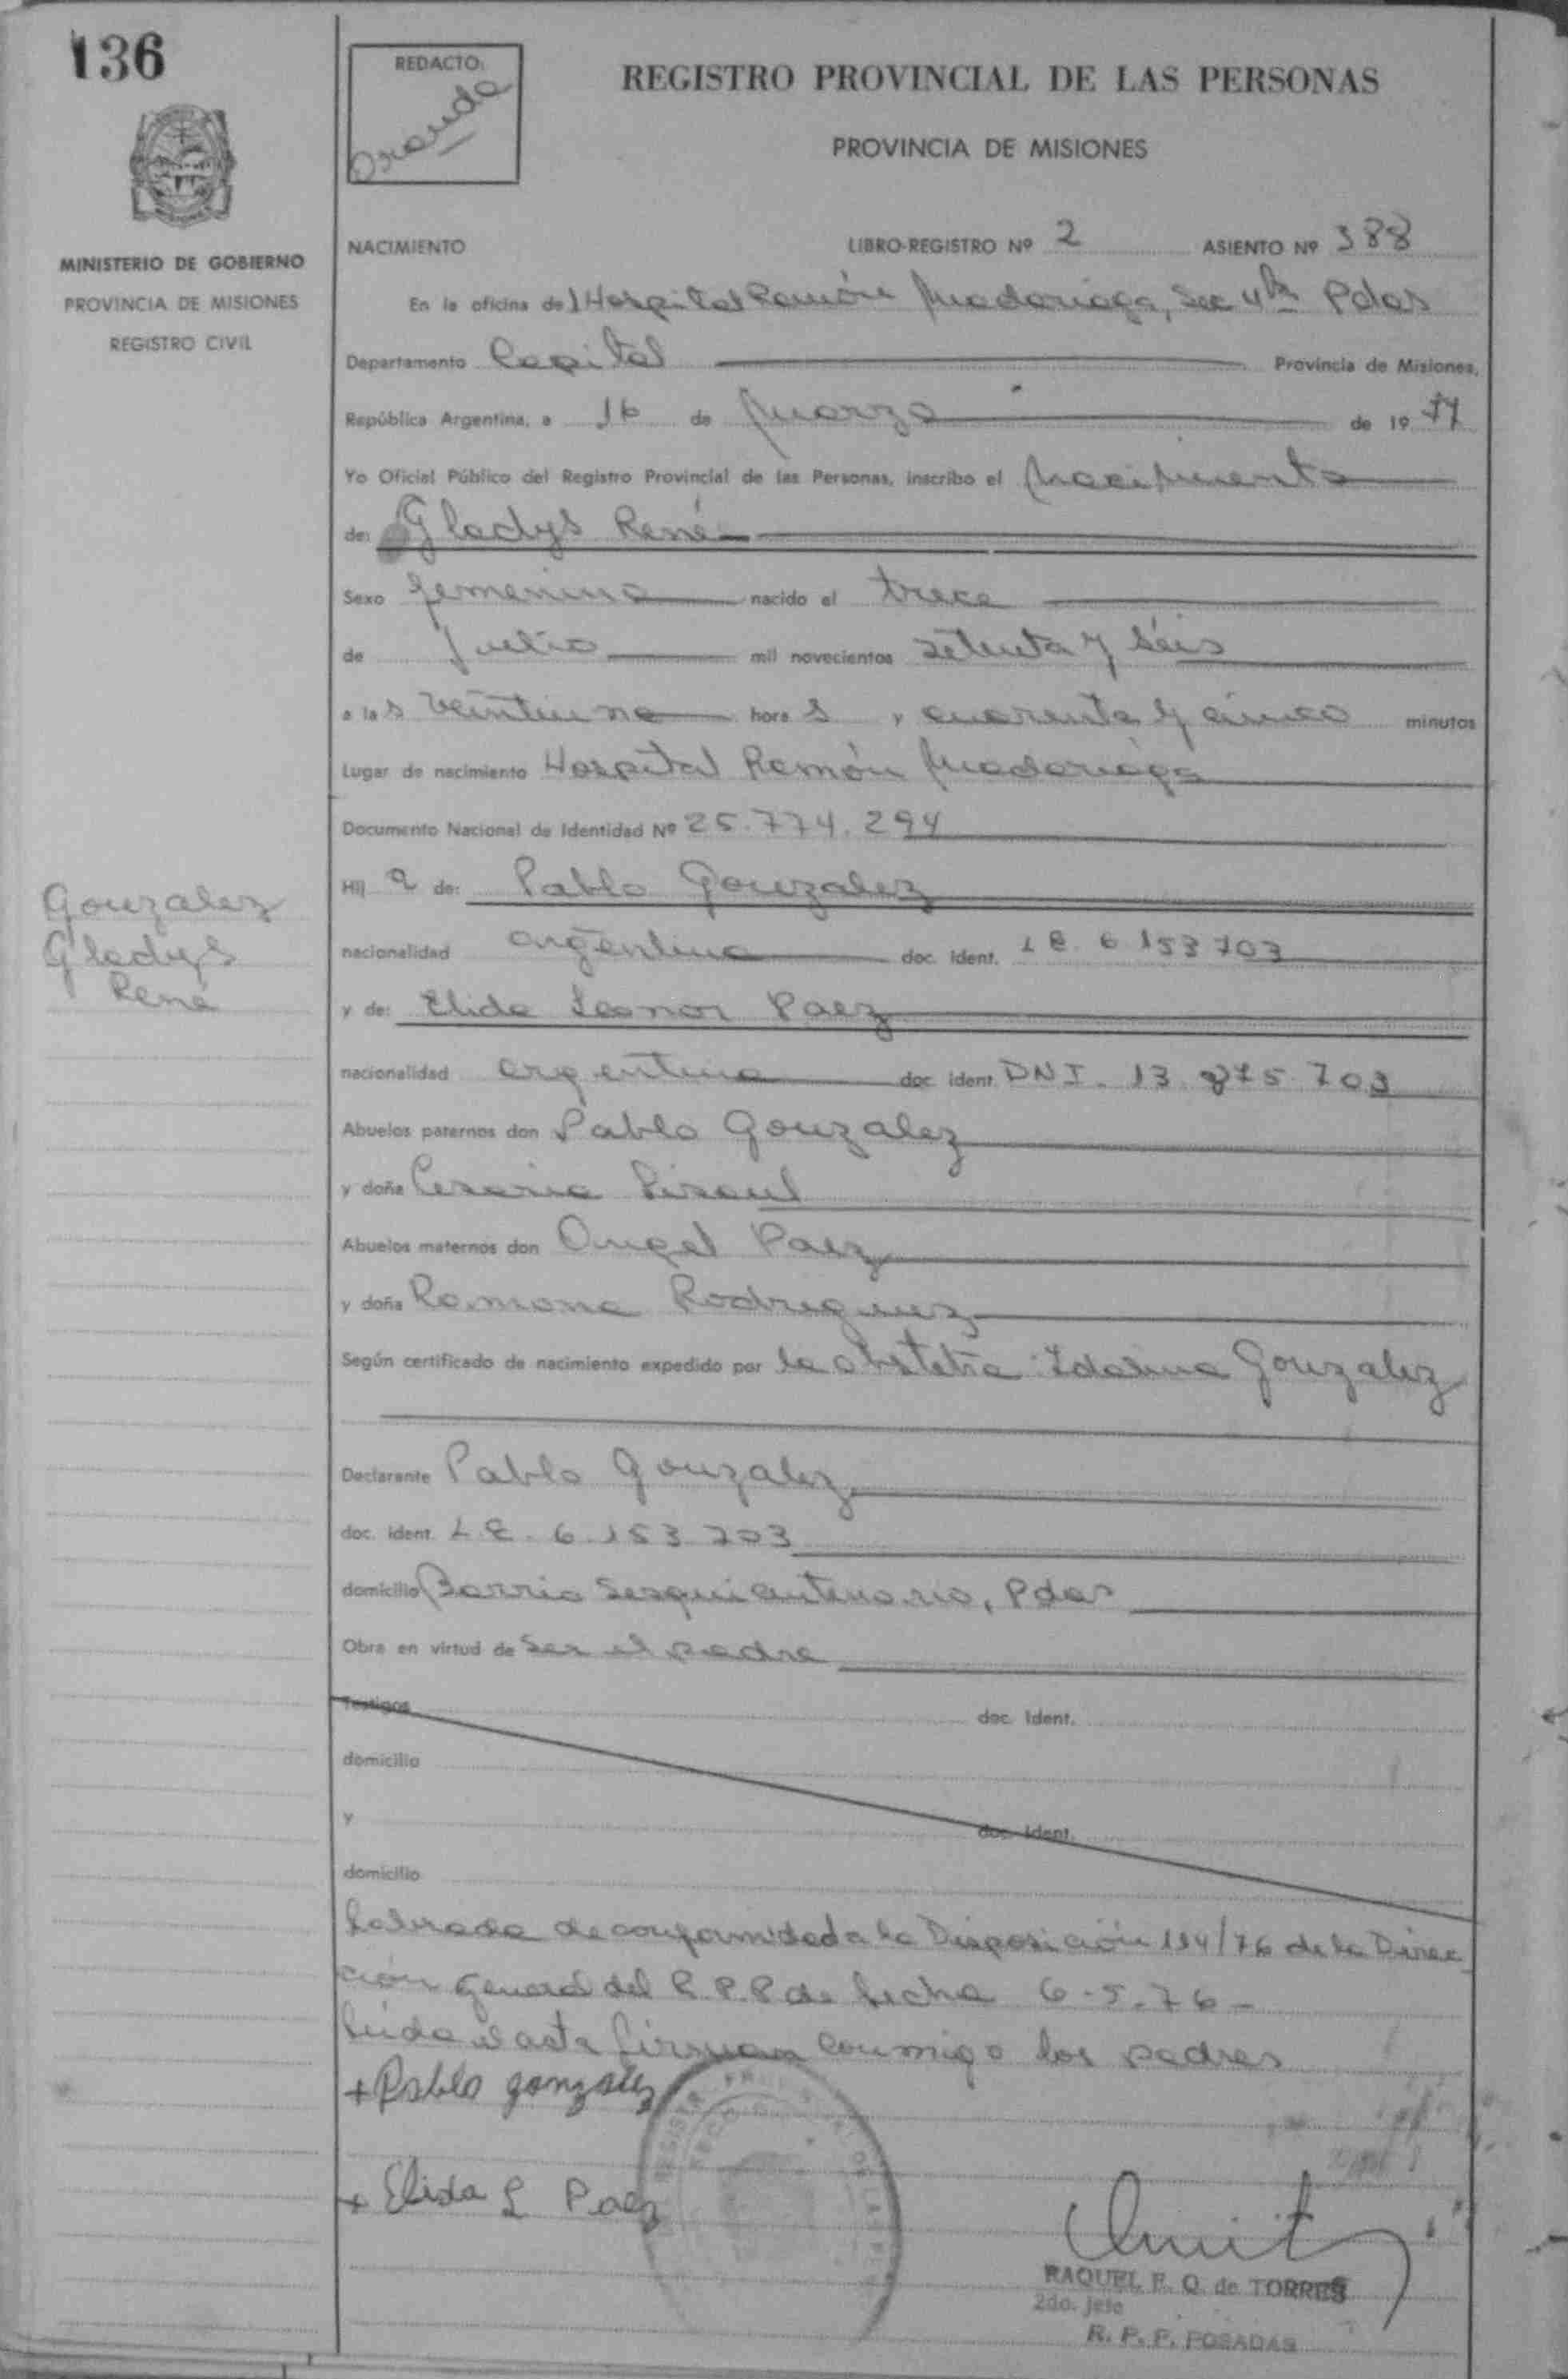 136
REDACTO:
REGISTRO PROVINCIAL DE LAS PERSONAS
PROVINCIA DE MISIONES
MINISTERIO DE GOBIERNO
PROVINCIA DE MISIONES
REGISTRO CIVIL
NACIMIENTO LIBRO-REGISTRO Nº 2 ASIENTO Nº 388
En la oficina del Hospital Ramón Madariaga, Sec 4ta Pdas
Departamento Capital Provincia de Misiones,
República Argentina, a 16 de Marzo de 1977
Yo Oficial Público del Registro Provincial de las Personas, inscribo el Nacimiento
de: Gladys René
Sexo femenino nacido el trece
de Julio mil novecientos setenta y séis
a las veintiuna horas y cuarenta y cinco minutos
Lugar de nacimiento Hospital Ramón Madariaga
Documento Nacional de Identidad Nº 25.774.294
Gonzalez
Gladys
René
Hija de: Pablo Gonzalez
nacionalidad argentina doc. Ident. LE. 6 153 703
y de: Elida Leonor Paez
nacionalidad argentina doc. ident. DNI. 13 875 703
Abuelos paternos don Pablo Gonzalez
y doña Cesaria
Abuelos maternos don Angel Paez
y doña Ramona Rodriguez
Según certificado de nacimiento expedido por la obstetra: Idalina Gonzalez
Declarante Pablo Gonzalez
doc. ident. L.E. 6.153.703
domicilio Barrio Sesquicentenario, Pdas
Obra en virtud de ser el padre
Testigos doc. Ident.
domicilio
y doc. Ident.
domicilio
Labrada de conformidad a la Disposición 194/76 de la Direc
ción General del R.P.P de fecha 6-5-76-
Leida el acta firman conmigo los padres
+ Pablo gonzalez
+ Elida L Paez
RAQUEL E. Q. de TORRES
2do. Jefe
R. P. P. POSADAS